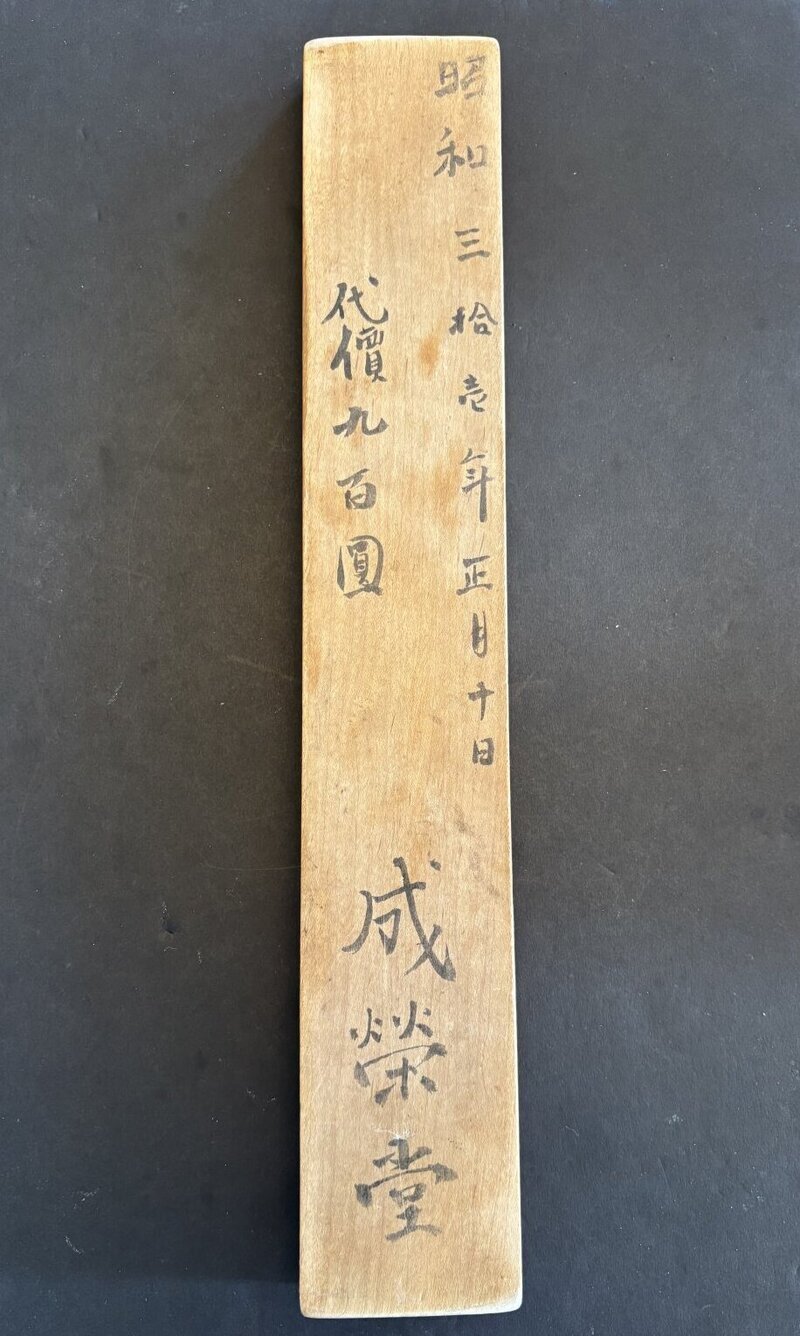 昭和三拾壱年正月十日
代價九百圓
成榮堂